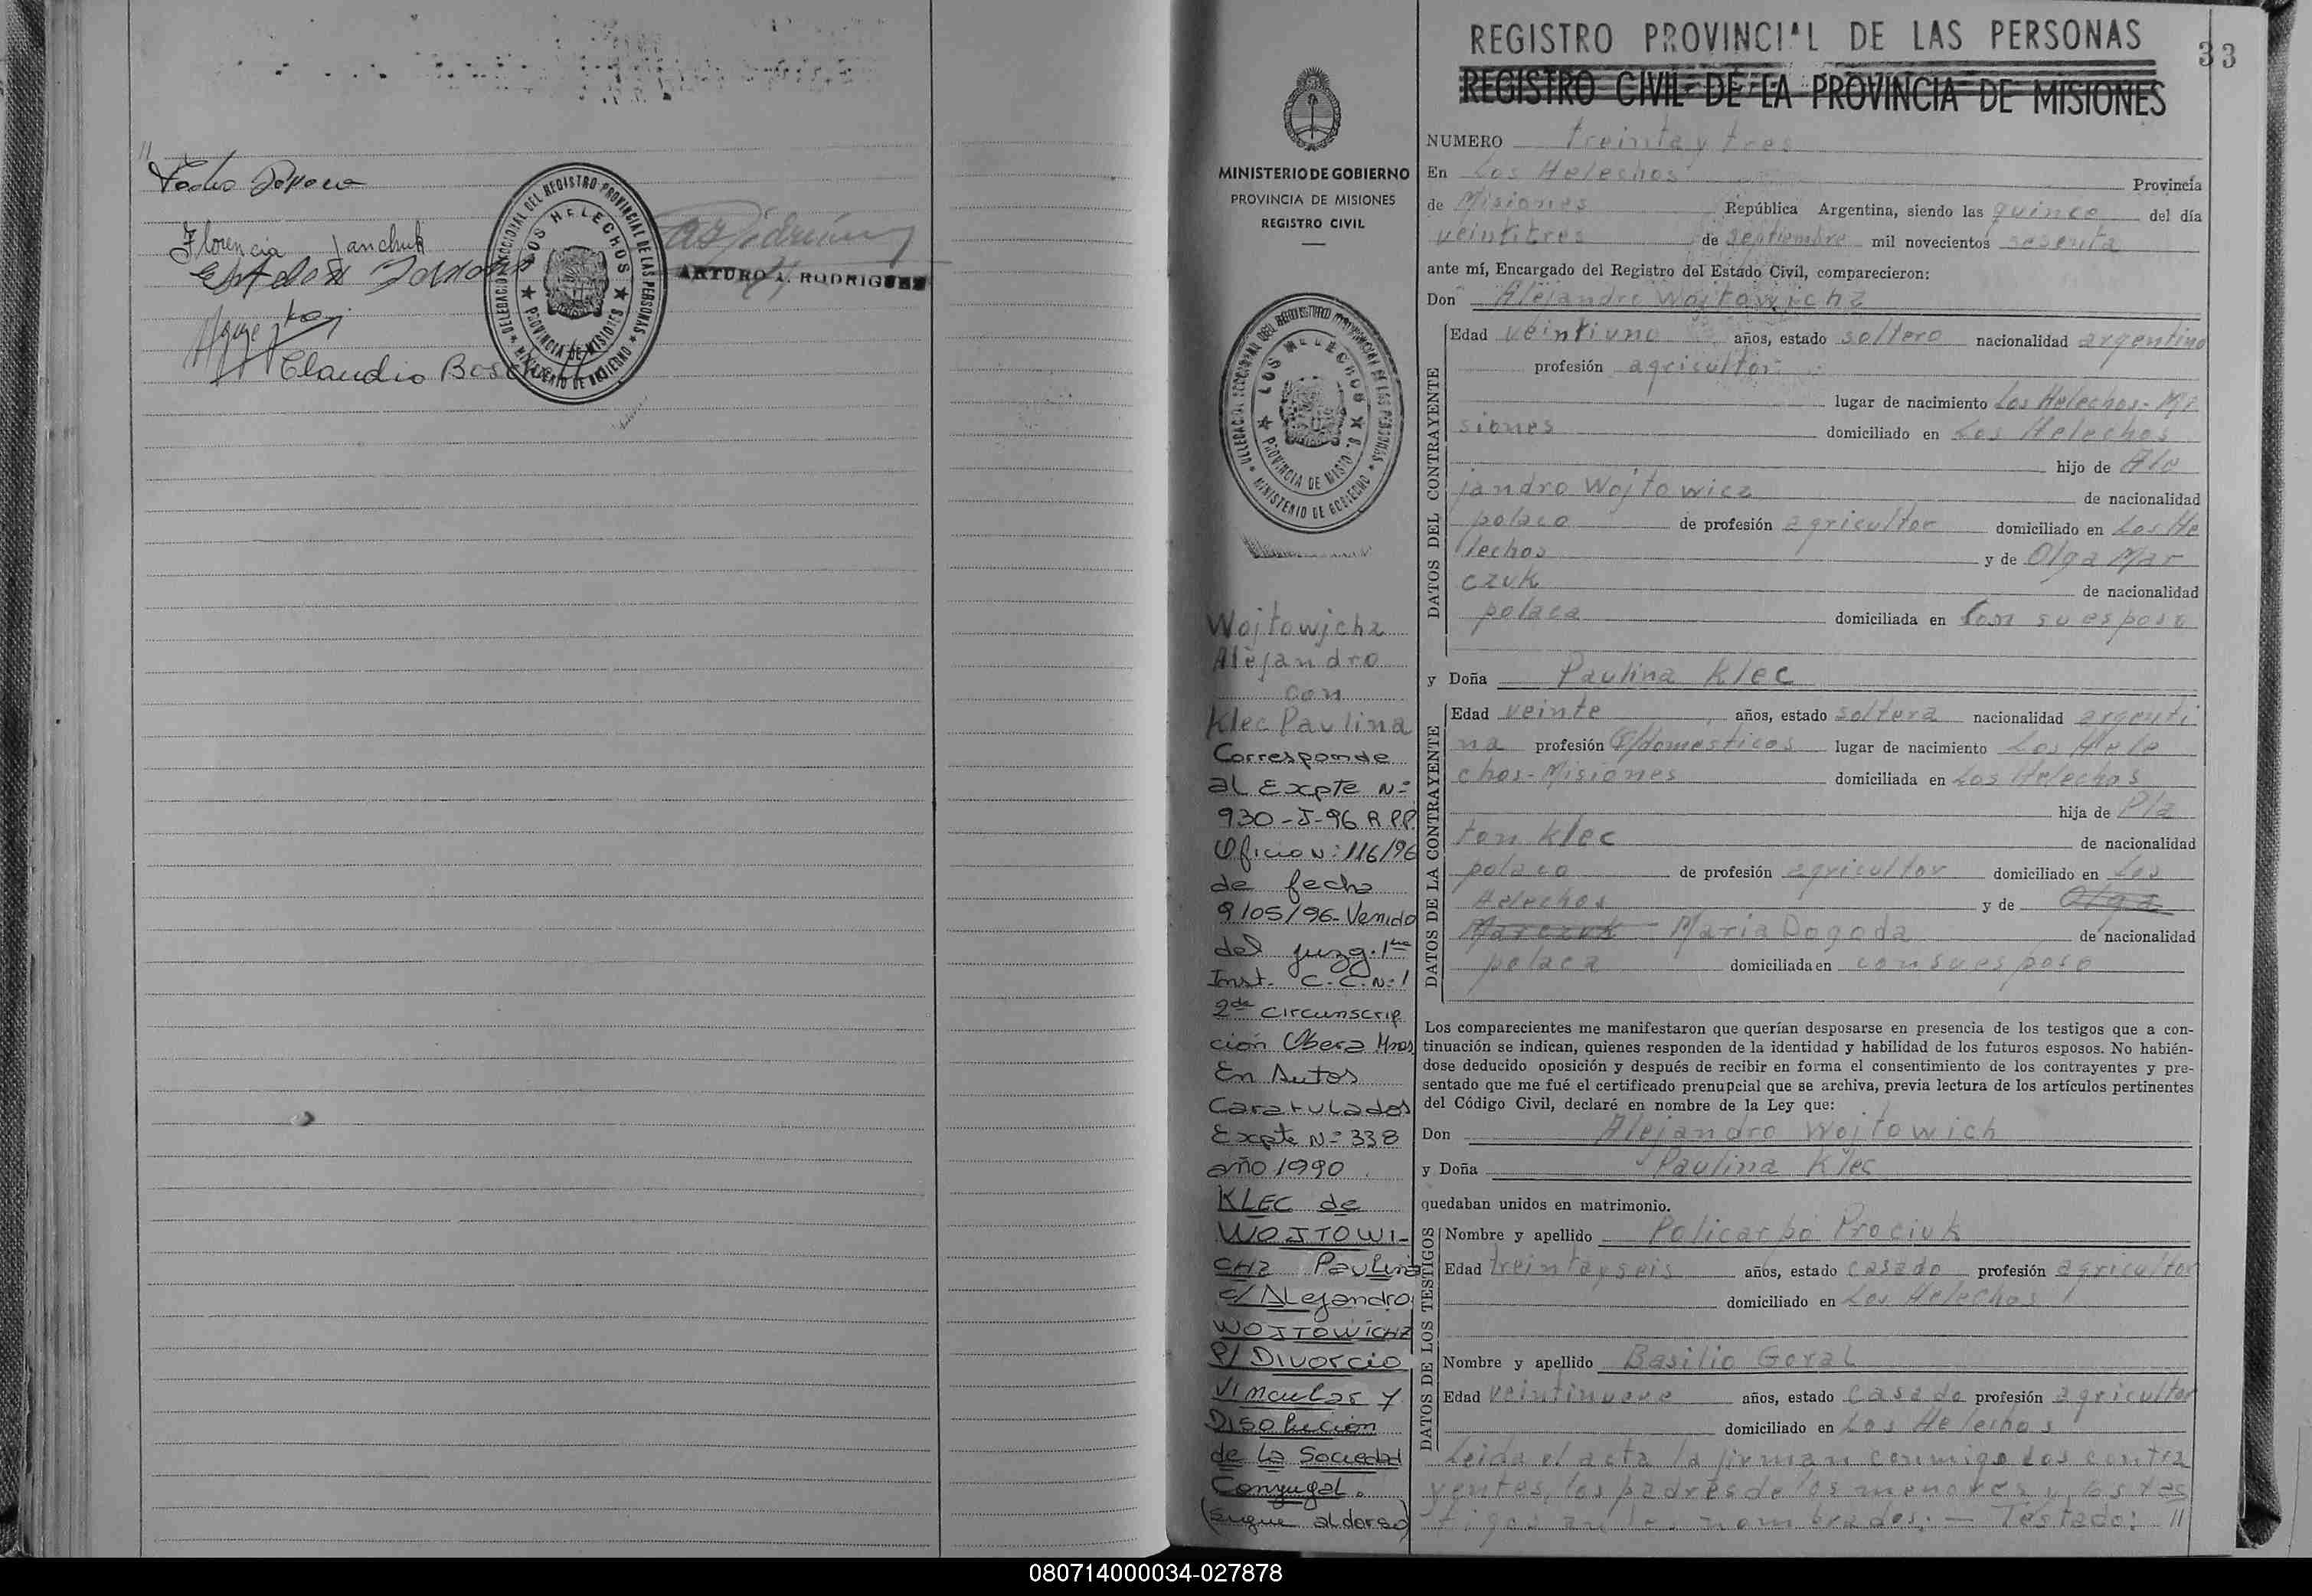 Florencia Janchuk
Claudio
ARTURO A. RODRIGUEZ
DELEGACION SECCIONAL DEL REGISTRO PROVINCIAL DE LAS PERSONAS
MINISTERIO DE GOBIERNO
LOS HELECHOS
PROVINCIA DE MISIONES
33
REGISTRO PROVINCIAL DE LAS PERSONAS
REGISTRO CIVIL DE LA PROVINCIA DE MISIONES
MINISTERIO DE GOBIERNO
PROVINCIA DE MISIONES
REGISTRO CIVIL
DELEGACION SECCIONAL DEL REGISTRO PROVINCIAL DE LAS PERSONAS
MINISTERIO DE GOBIERNO
LOS HELECHOS
PROVINCIA DE MISIONES
Wojtowjchz
Alejandro
con
Klec Paulina
Corresponde
al Expte Nº
930-J-96 R.P.P.
Oficio Nº 116/96
de fecha
9/05/96-Venido
del Juzg. 1ra
Inst. C.C.Nº1
2da Circunscrip
ción Oberá Mnes
En Autos
Caratulados
Expte Nº 338
año 1990
KLEC de
WOJTOWI-
CHZ Paulina
c/ Alejandro
WOJTOWICHZ
P/ Divorcio
Vincular y
Disolución
de la Sociedad
Conyugal.
(Sigue al dorso)
NUMERO treinta y tres
En Los Helechos Provincia
de Misiones República Argentina, siendo las quince del día
veintitres de septiembre mil novecientos sesenta
ante mí, Encargado del Registro del Estado Civil, comparecieron:
Don Alejandro Wojtowjchz
DATOS DEL CONTRAYENTE
Edad veintiuno años, estado soltero nacionalidad argentino
profesión agricultor
lugar de nacimiento Los Helechos-Mi
siones domiciliado en Los Helechos
hijo de Ale
jandro Wojtowicz de nacionalidad
polaco de profesión agricultor domiciliado en Los He
lechos y de Olga Mar
czuk de nacionalidad
polaca domiciliada en con su esposo
y Doña Paulina Klec
DATOS DE LA CONTRAYENTE
Edad veinte años, estado soltera nacionalidad argenti
na profesión Q/domesticos lugar de nacimiento Los Hele
chos-Misiones domiciliada en Los Helechos
hija de Pla
ton Klec de nacionalidad
polaco de profesión agricultor domiciliado en Los
Helechos y de Olga
Marczuk - Maria Dogoda de nacionalidad
polaca domiciliada en con su esposo
Los comparecientes me manifestaron que querían desposarse en presencia de los testigos que a con-
tinuación se indican, quienes responden de la identidad y habilidad de los futuros esposos. No habién-
dose deducido oposición y después de recibir en forma el consentimiento de los contrayentes y pre-
sentado que me fué el certificado prenupcial que se archiva, previa lectura de los artículos pertinentes
del Código Civil, declaré en nombre de la Ley que:
Don Alejandro Wojtowich
y Doña Paulina Klec
quedaban unidos en matrimonio.
DATOS DE LOS TESTIGOS
Nombre y apellido Policarpo Prociuk
Edad treinta y seis años, estado casado profesión agricultor
domiciliado en Los Helechos
Nombre y apellido Basilio Goral
Edad veintinueve años, estado casado profesión agricultor
domiciliado en Los Helechos
Leida el acta la firman conmigo los contra
yentes, los padres de los menores y los tes
tigos antes nombrados.- Testado: //
080714000034-027878